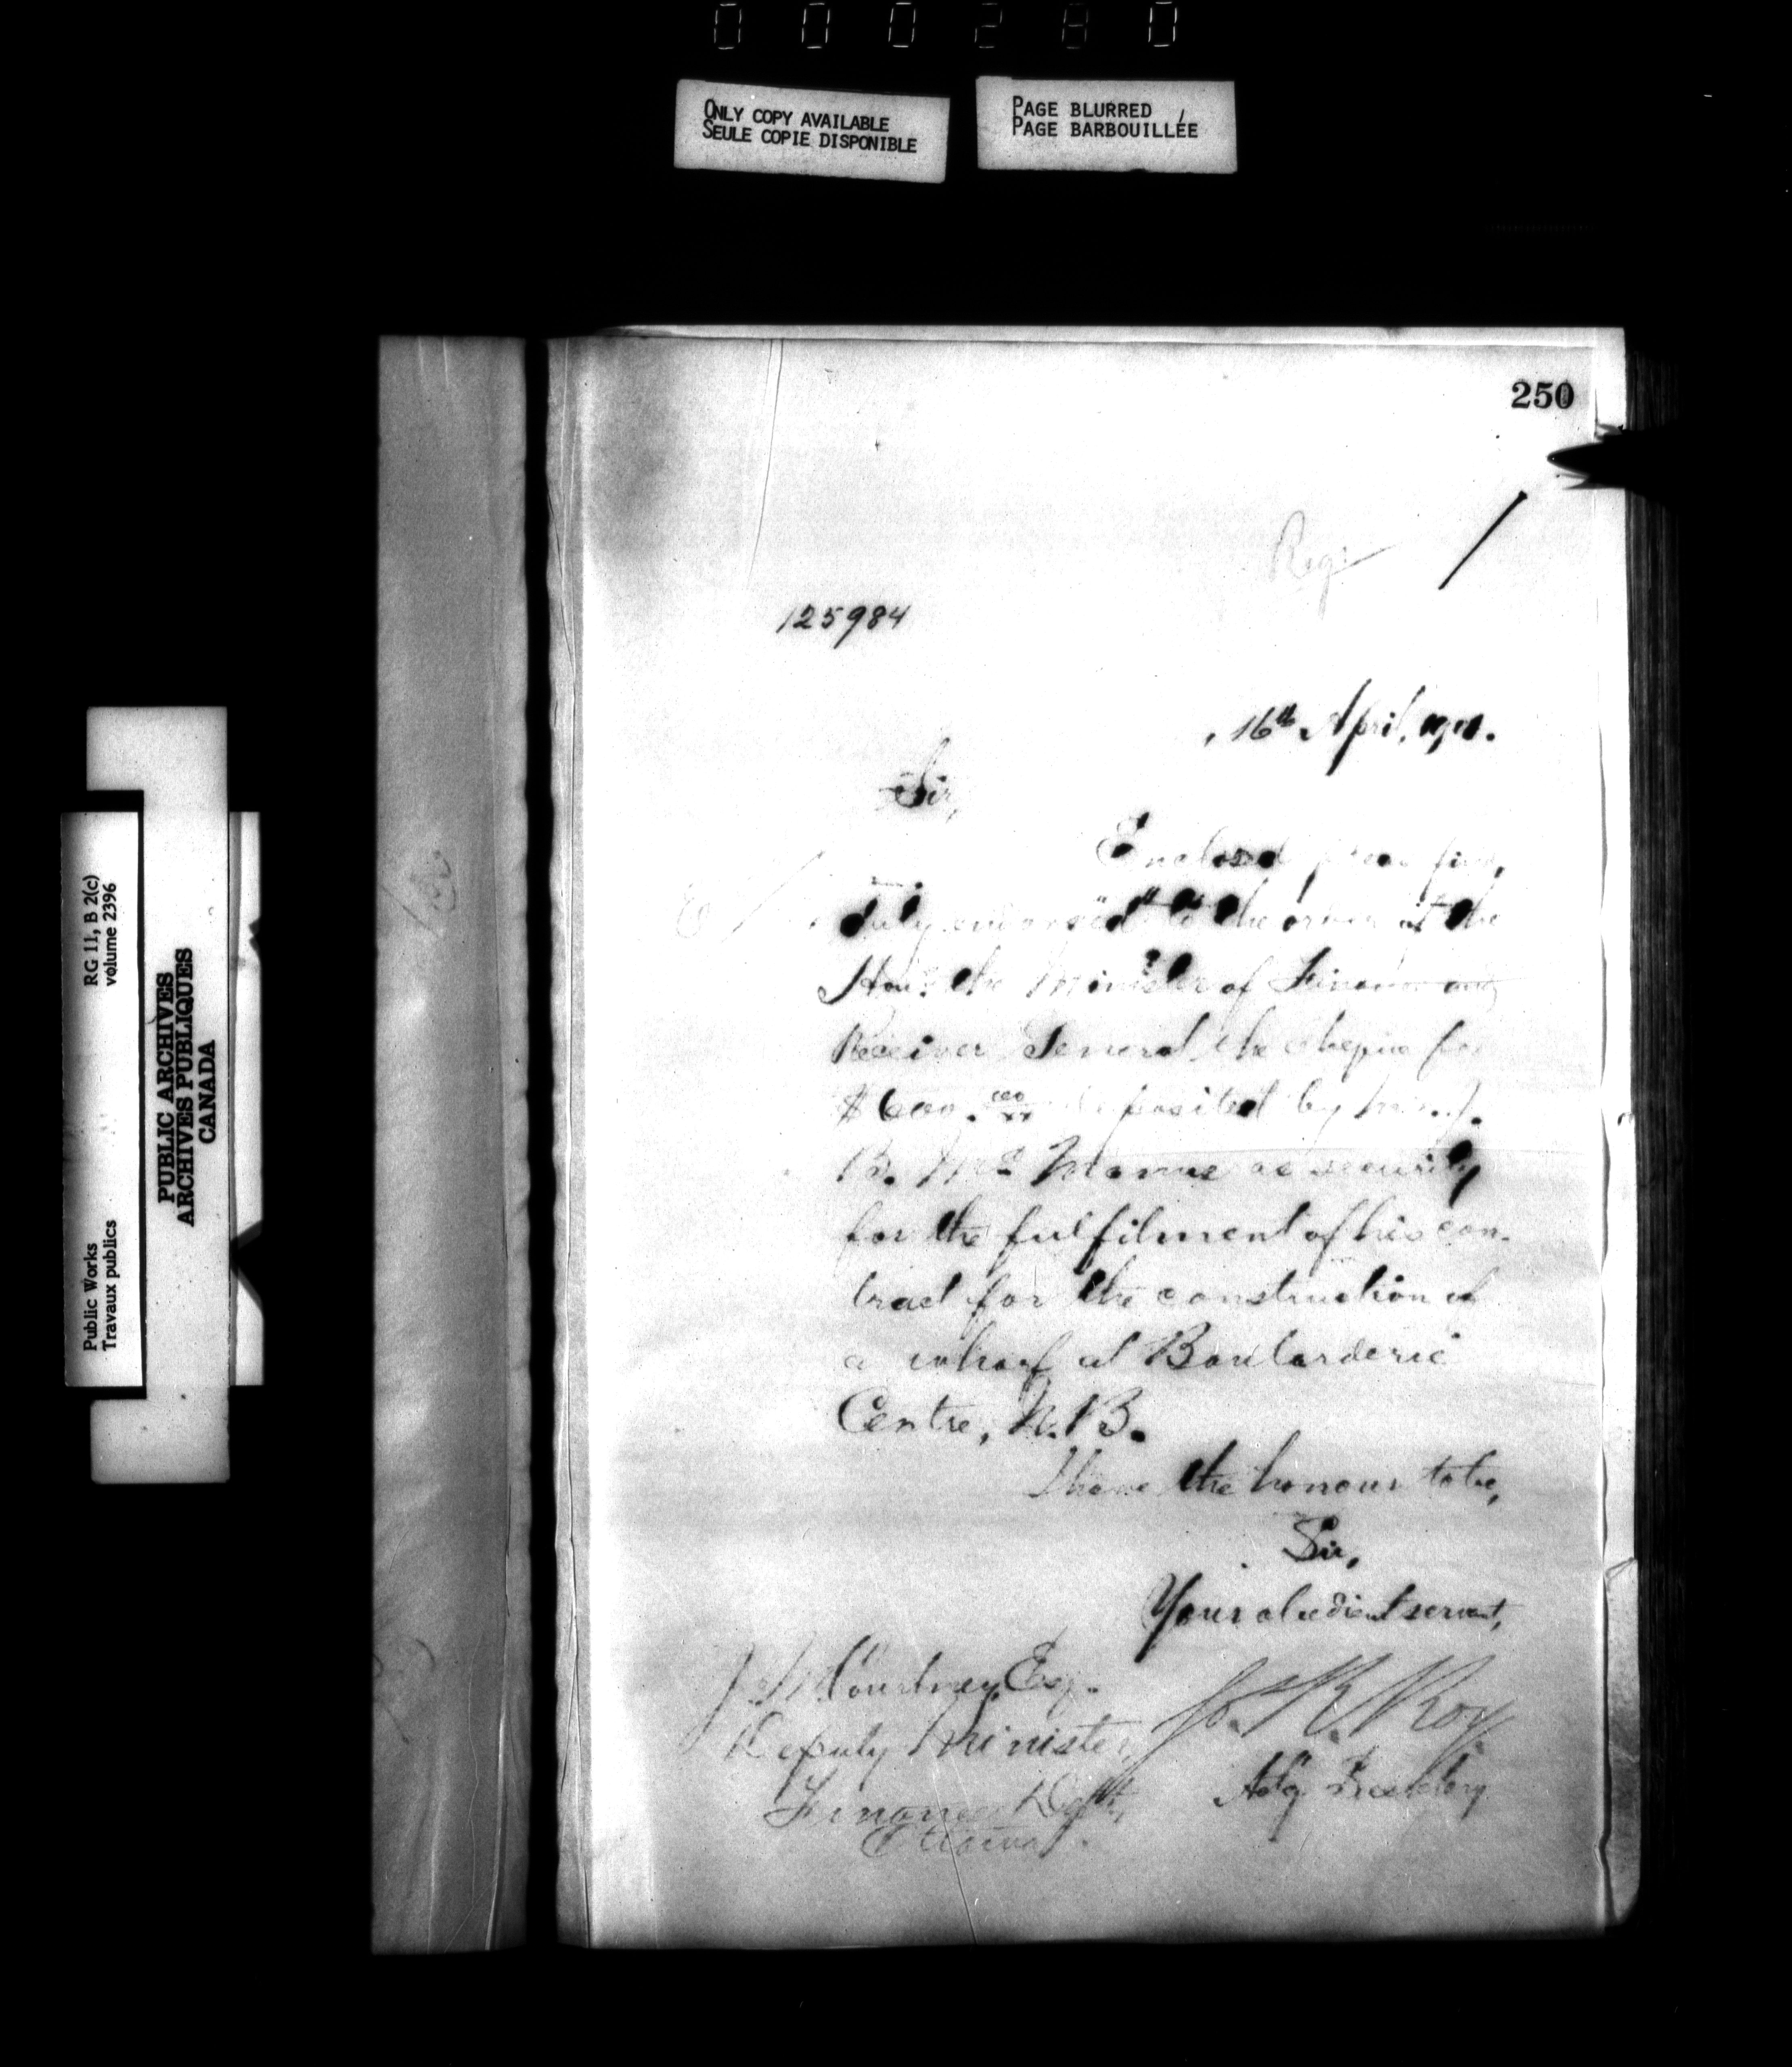 000280
ONLY COPY AVAILABLE
SEULE COPIE DISPONIBLE
PAGE BLURRED
PAGE BARBOUILLÉE
250
Reg
125984
16th April, 1901.
Sir,
Enclosed please find,
duly endorsed to the order of the
Hon. the Minister of Finance and
Receiver General, the cheque for
$600. 00/xx deposited by
B. Mc Manus as security
for the fulfilment of his con-
tract for the construction of
a wharf at Boularderie
Centre, N.B.
I have the honour to be,
Sir,
Your obedient servant,
J. M. Courtney, Esq.
Deputy Minister,
Finance Dept.,
Ottawa.
Jos. R. Roy
Actg. Secretary
Public Works
Travaux publics
RG 11, B 2(c)
volume 2396
PUBLIC ARCHIVES
ARCHIVES PUBLIQUES
CANADA